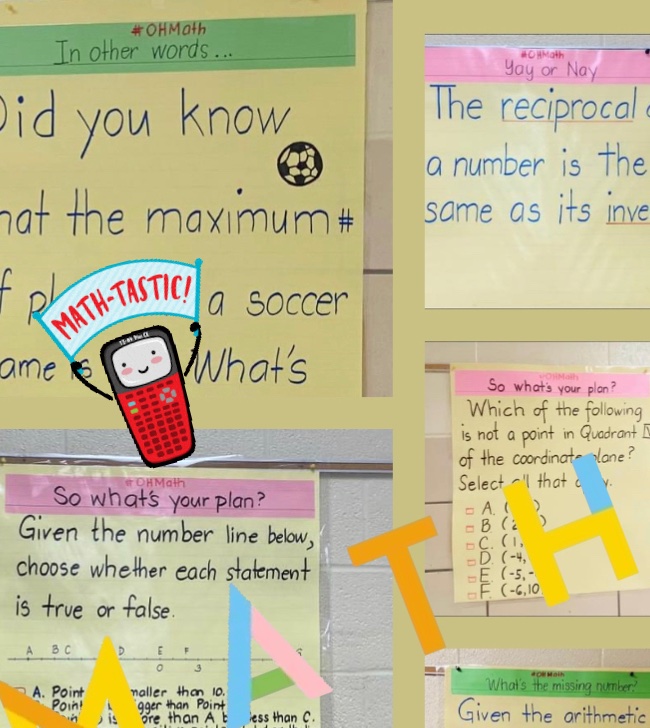 #OHMath
In other words...
Did you know
hat the maximum #
f pl a soccer
ame is What's
MATH-TASTIC!
#OHMath
Yay or Nay
The reciprocal
a number is the
same as its inve
#OHMath
So what's your plan?
Which of the following
is not a point in Quadrant
of the coordinate plane?
Select all that
A. (
B (2
C. (1,
D. (-4,
E. (-5,-
F. (-6,10
#OHMath
So what's your plan?
Given the number line below,
choose whether each statement
is true or false.
A B C D E F
0 3
A. Point maller than 10.
Point gger than Point
is ore than A b ess than C.
M A T H
#OHMath
What's the missing number?
Given the arithmetic